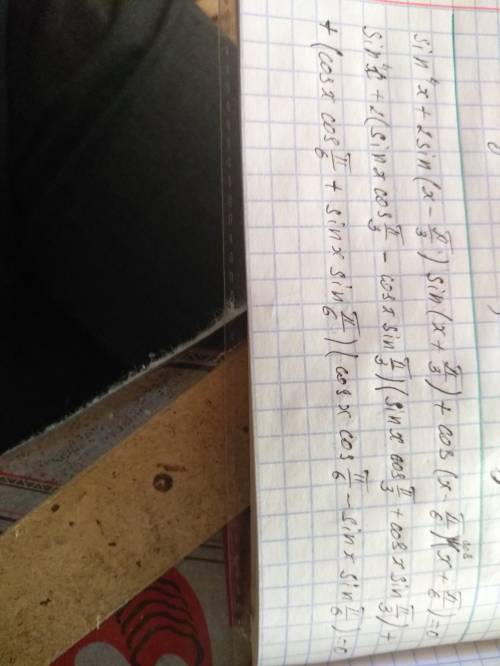 sin⁴x + 2sin(x - π/3) sin(x + π/3) + cos(x - π/6) cos(x + π/6) = 0
sin⁴x + 2(sin x cos π/3 - cos x sin π/3)(sin x cos π/3 + cos x sin π/3) +
+ (cos x cos π/6 + sin x sin π/6)(cos x cos π/6 - sin x sin π/6) = 0